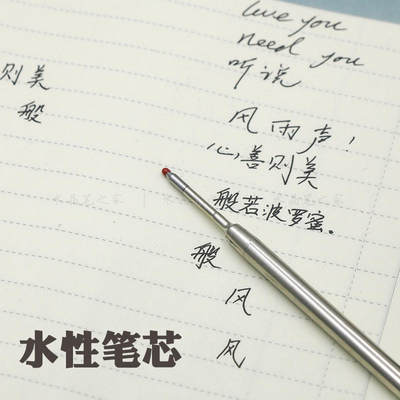 love you
need you
听说
则美
般
风雨声！
心善则美
般若波罗蜜.
般
风
风
水性笔芯